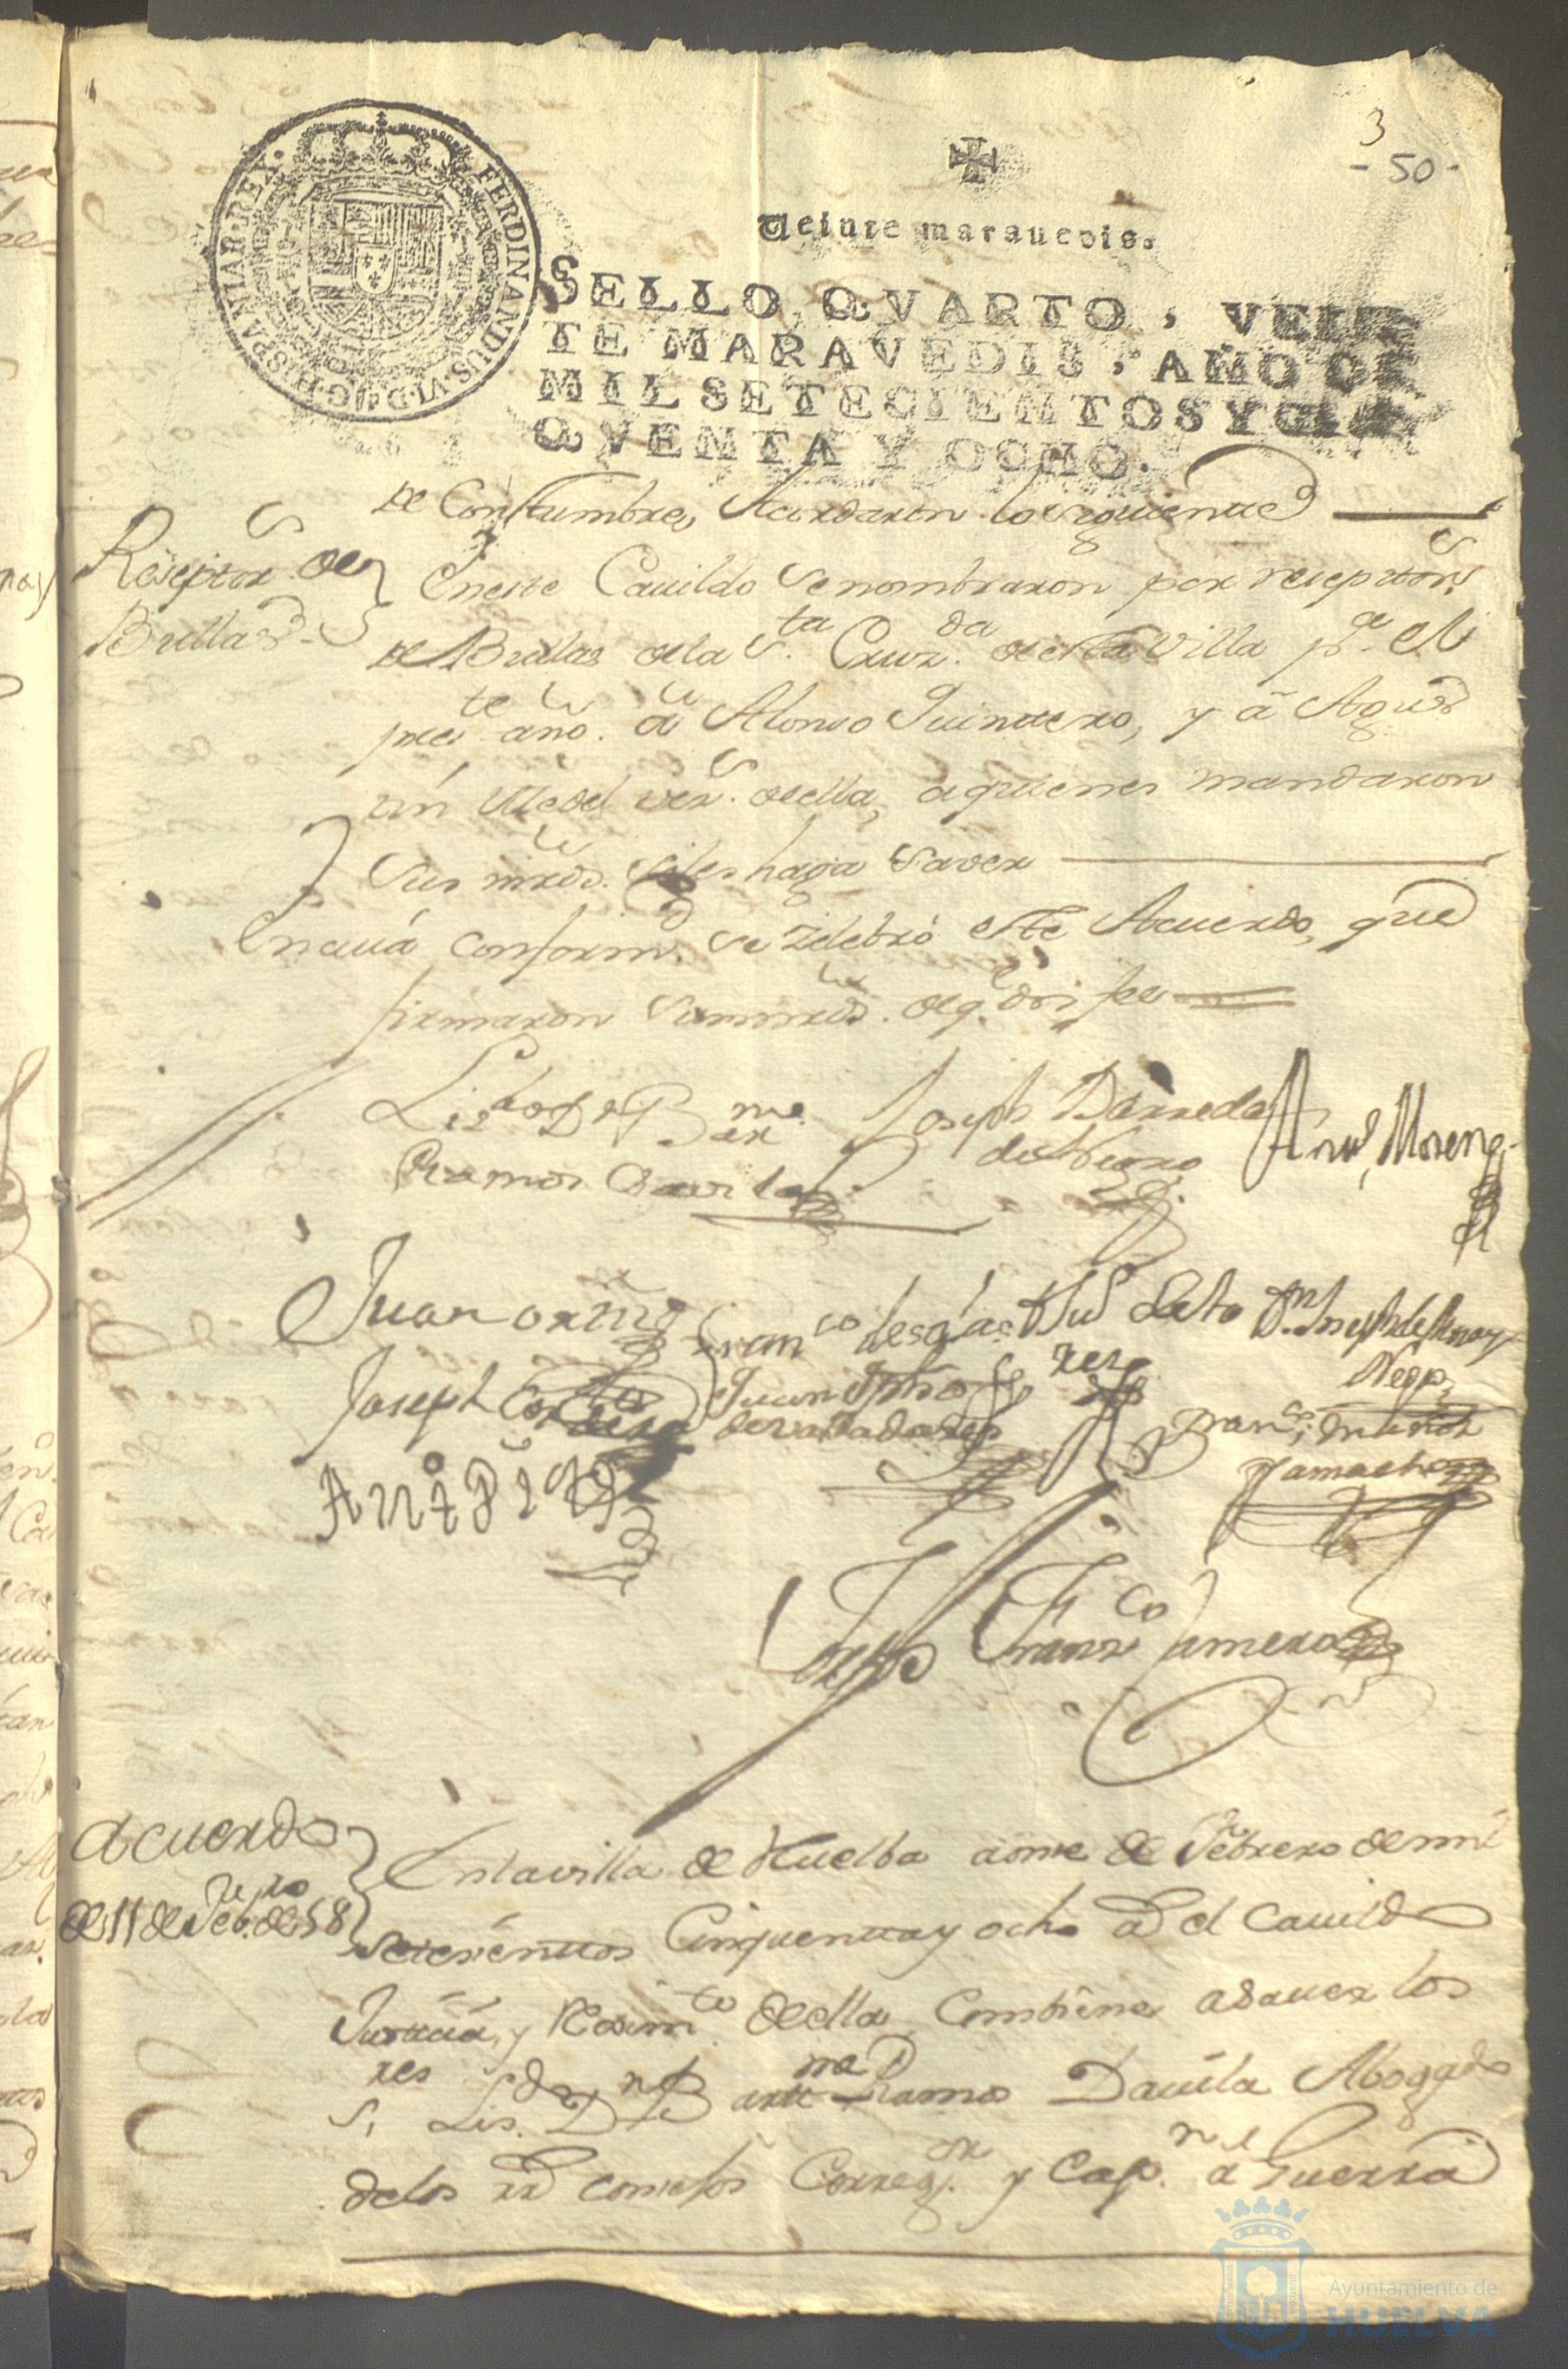 3
- 50 -
FERDINANDUS·VI·D·G·HISPANIAR·REX·
Veinte maravedis.
SELLO QVARTO, VEIN
TE MARAVEDIS, AÑO DE
MIL SETECIENTOS Y CIN
QVENTA Y OCHO.
de Constumbre, Acordaron lo siguiente
Reseptor. de
Bullas
En este Cauildo se nombraron por reseptors.
de Bullas de la Sta. Cruzda. de esta Villa pa. el
preste. año. a Alonso Quintero, y â Agus
tin Medel vez. de ella, a quienes mandaron
sus mrds. se les haga saver
En cuiá conformd. se zelebró este Acuerdo, que
firmaron sus mrds. de q. doi fee
Lizdo Dn Barme.
Ramos Davila
Joseph Barreda
Anto. Moreno
Juan
Franco de
Joseph
Juan
de valladares
Franco. muñoz
Camacho
Joseph Franco
Acuerdo
de 11 de Febro. de 58
En la villa de Huelba a onse de Febrero de mil
setesientos Cinquenta y ocho a el Cauildo
Justicia, y Reximto. de ella Combiene a saver los
Sres. Lisdo. Dn Bartme Ramos Dauila Abogado
de los rs consejos Corregor. y Capn. a Guerra
Ayuntamiento de
HUELVA